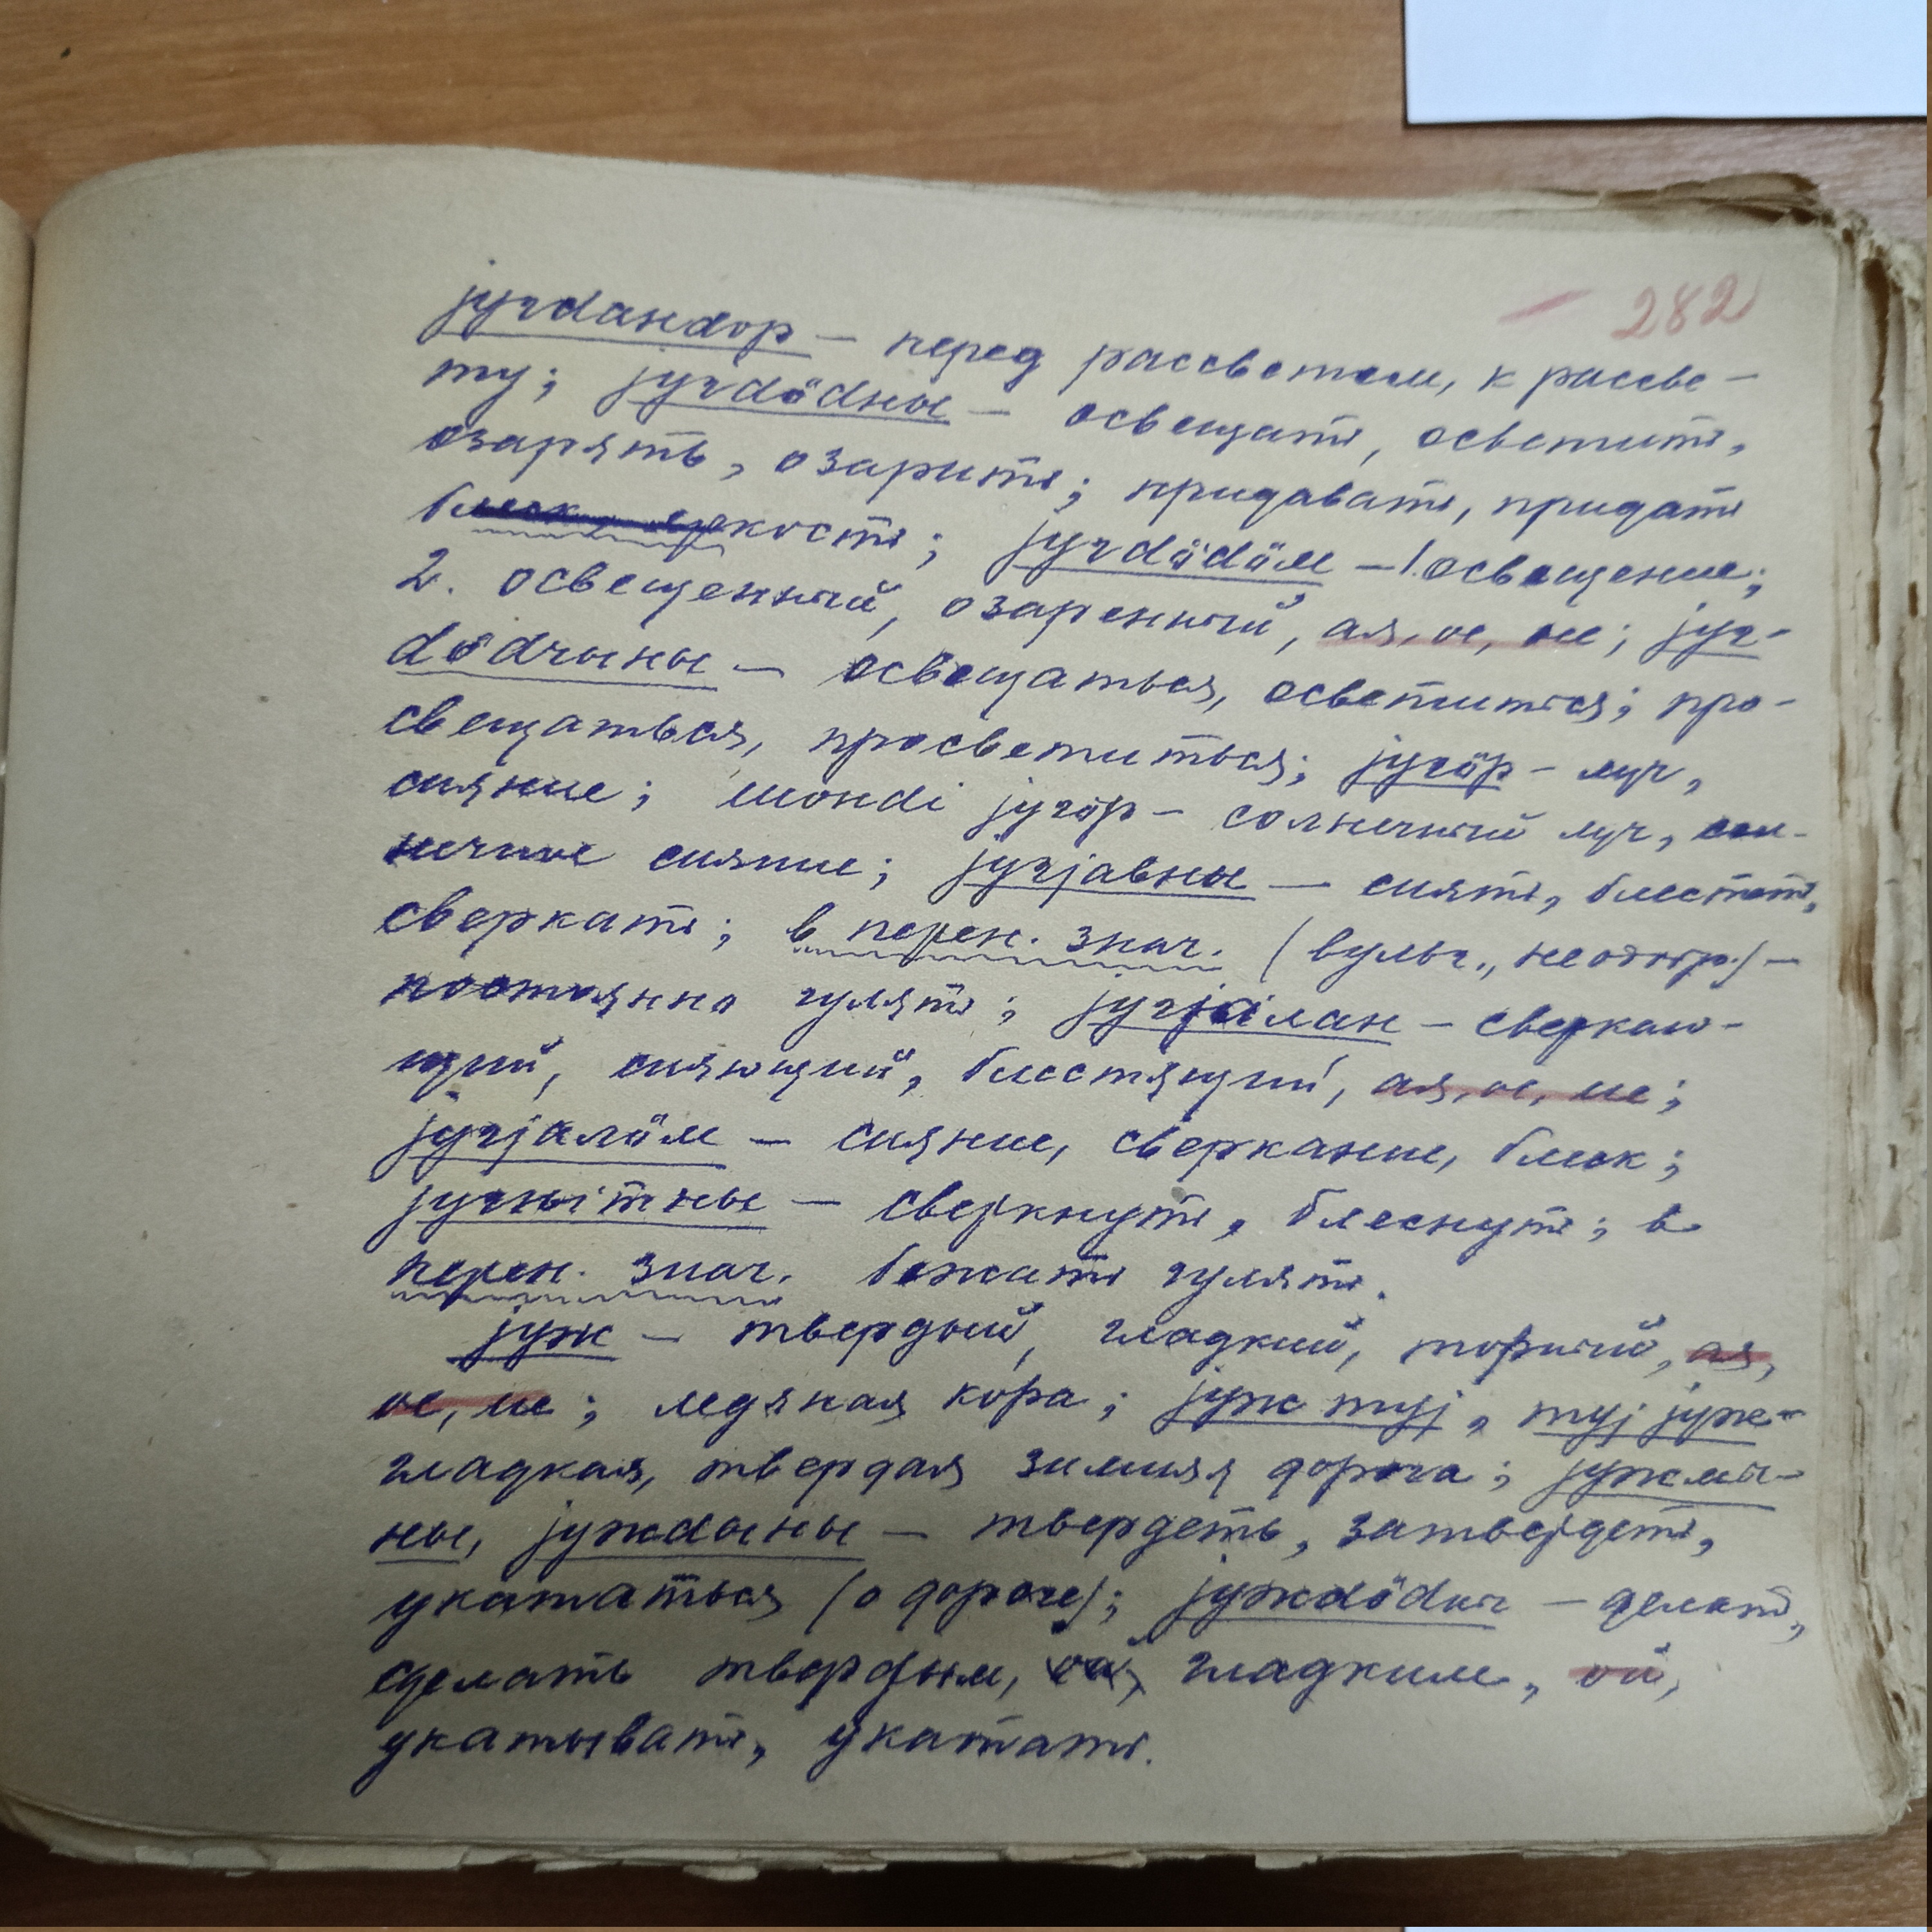 282
југdандор – перед рассветом, к рассве-
ту; југdöдны – освещать, осветить,
озарять, озарить; придавать, придать
блеск, яркость; југdöдöм – 1. освещение;
2. освещенный, озаренный, ая, ое, ые; југ-
döдчыны – освещаться, осветиться; про-
свещаться, просветиться; југöр – луч,
сияние; шонdі југöр – солнечный луч, сол-
нечное сияние; југјавны – сиять, блестеть,
сверкать; в перен. знач. (вульг., неодобр.) –
постоянно гулять; југјалан – сверкаю-
щий, сияющий, блестящий, ая, ое, ие;
југјалöм – сияние, сверкание, блеск;
југнытны – сверкнуть, блеснуть; в
перен. знач. бежать гулять.
јуж – твердый, гладкий, торный, ая,
ое, ые; ледяная кора; јуж туј, туј јуж –
гладкая, твердая зимняя дорога; јужмы-
ны, јужdыны – твердеть, затвердеть,
укататься (о дороге); јужdöдны – делать,
сделать твердым, ой, гладким, ой,
укатывать, укатать.